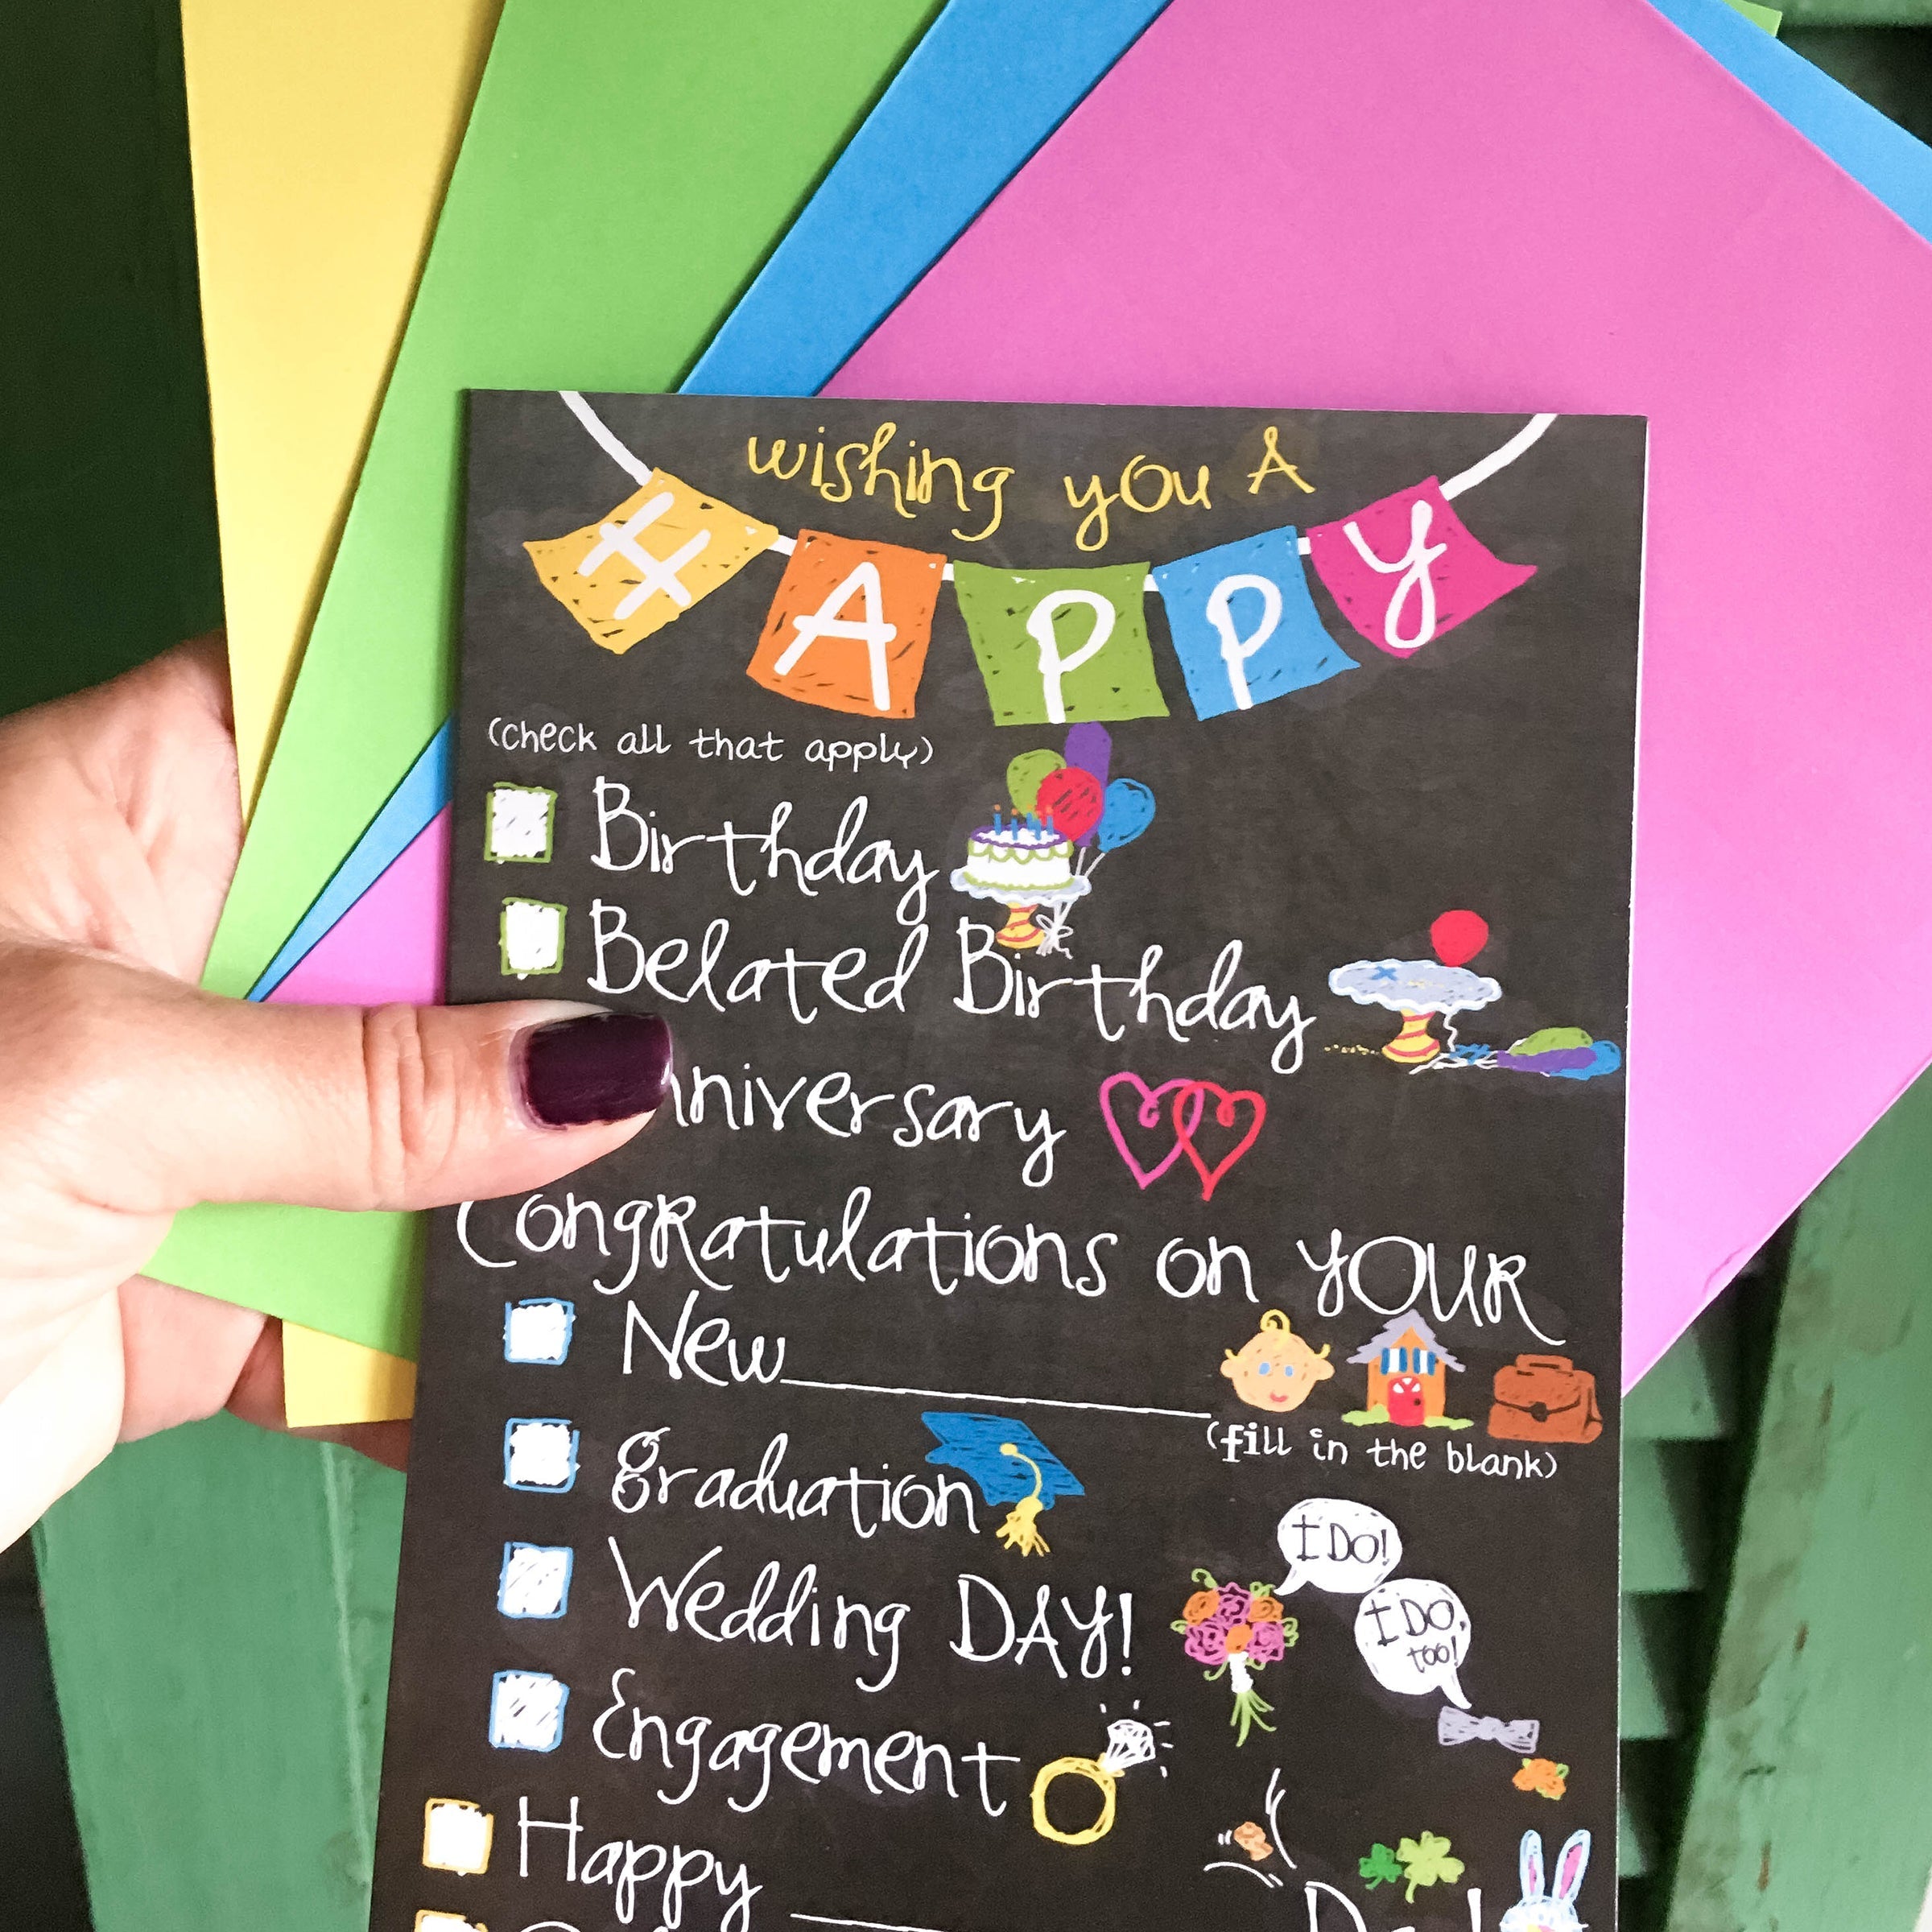 wishing you A
HAPPY
(check all that apply)
Birthday
Belated Birthday
nniversary
Congratulations on YOUR
New
(fill in the blank)
graduation
I DO!
Wedding DAY!
I DO, too!
Engagement
Happy